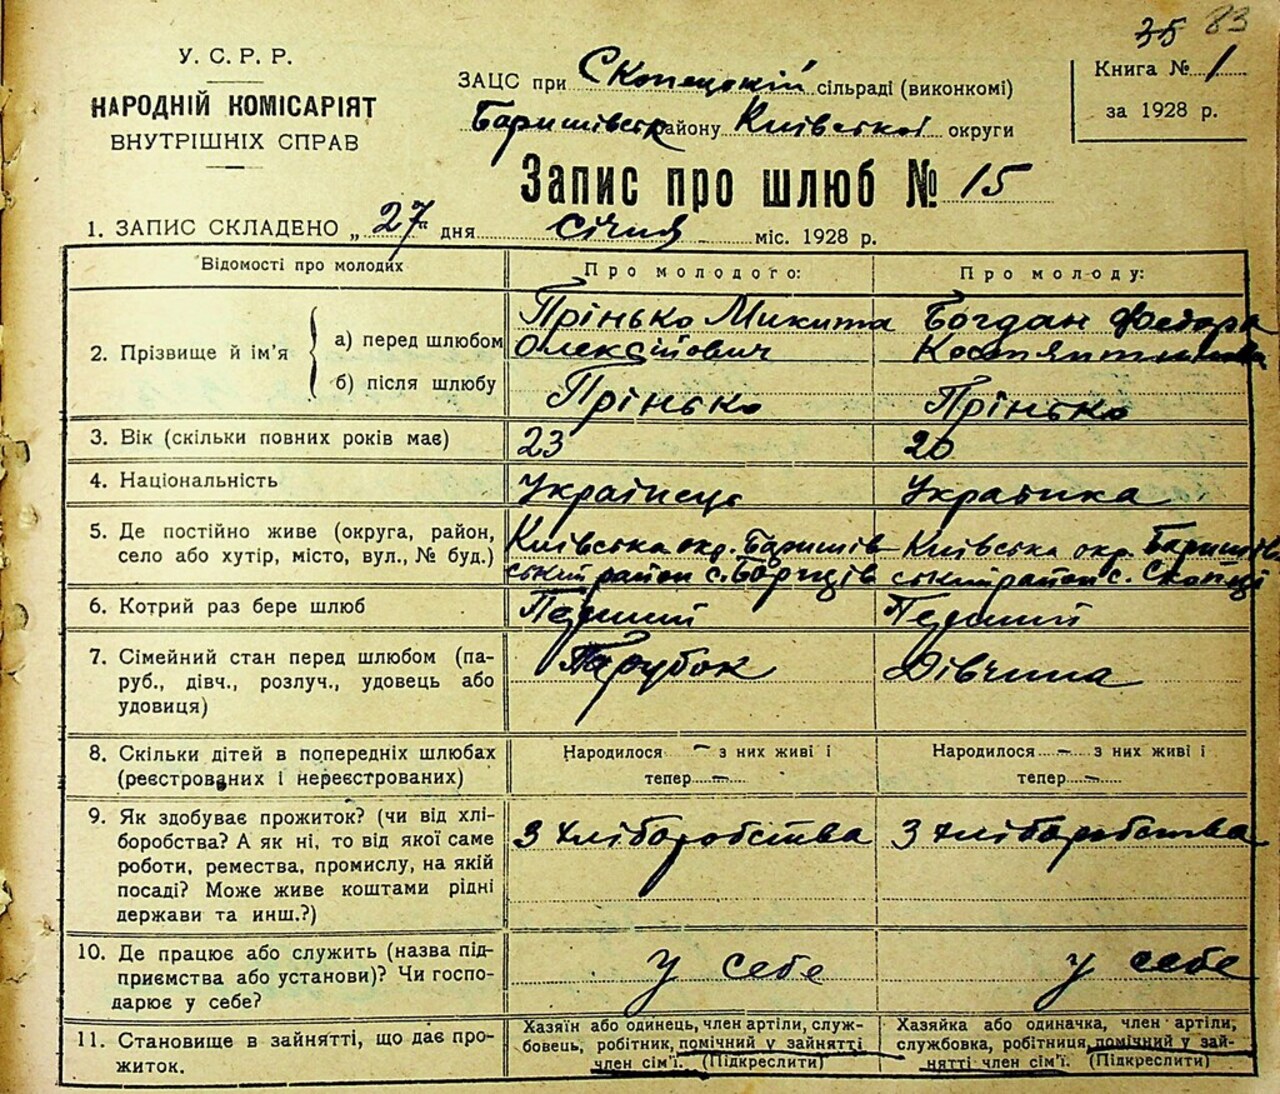 35 83
У. С. Р. Р.
НАРОДНІЙ КОМІСАРІЯТ
ВНУТРІШНІХ СПРАВ
ЗАЦС при Скопецькій сільраді (виконкомі)
Баришівськ району Київської округи
Книга № 1
за 1928 р.
Запис про шлюб № 15
1. ЗАПИС СКЛАДЕНО „ 27 дня січня міс. 1928 р.
Відомості про молодих
Про молодого:
Про молоду:
2. Прізвище й ім'я
а) перед шлюбом
Прінько Микита
Олексійович
Богдан Федора
Костянтинівна
б) після шлюбу
Прінько
Прінько
3. Вік (скільки повних років має)
23
20
4. Національність
Українець
Українка
5. Де постійно живе (округа, район,
село або хутір, місто, вул., № буд.)
Київська окр. Баришів-
ський район с. Борщів
Київська окр. Баришів
ський район с. Скопці
6. Котрий раз бере шлюб
Перший
Перший
7. Сімейний стан перед шлюбом (па-
руб., дівч., розлуч., удовець або
удовиця)
Парубок
Дівчина
8. Скільки дітей в попередніх шлюбах
(реєстрованих і нереєстрованих)
Народилося – з них живі і
тепер –
Народилося – з них живі і
тепер –
9. Як здобуває прожиток? (чи від хлі-
боробства? А як ні, то від якої саме
роботи, ремества, промислу, на якій
посаді? Може живе коштами рідні
держави та инш.?)
З хліборобства
З хліборобства
10. Де працює або служить (назва під-
приємства або установи)? Чи госпо-
дарює у себе?
у себе
у себе
11. Становище в зайнятті, що дає про-
житок.
Хазяїн або одинець, член артілі, служ-
бовець, робітник, помічний у зайнятті
член сім'ї. (Підкреслити)
Хазяйка або одиначка, член артіли,
службовка, робітниця, помічний у зай-
нятті член сім'ї. (Підкреслити)